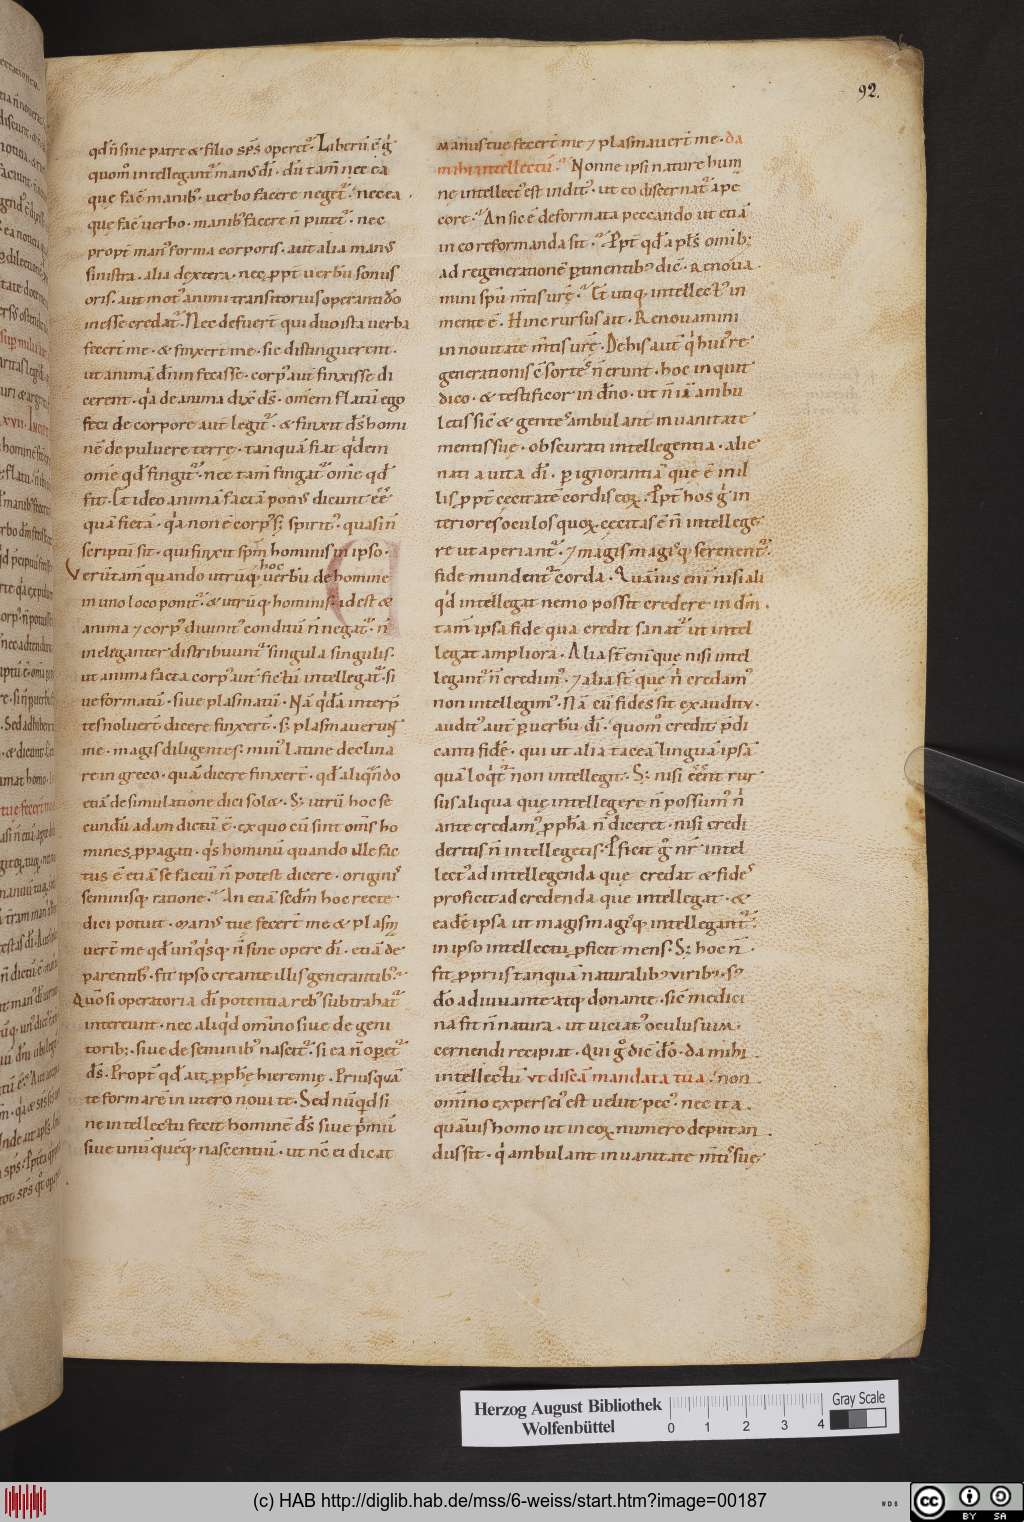 92.
qđ ñ sine patre & filio sp̄s operet᷑. Liberū ē g̊
quom̊ intellegant᷑ man⁹ dī. dū tam̄ nec ea
quę facĕ manib⁹. verbo facere neget᷑. nec ea
quę facĕ verbo. manib⁹ facere ñ putet᷑. nec
propt̄ man⁹ forma corporis. aut alia man⁹
sinistra. alia dextera. nec ꝓpt̄ verbū sonus
oris. aut mot⁹ animi transitorius operanti dō
inesse credat᷑. Nec defuer̄t qui duo ista verba
fecer̄t me. & finxer̄t me. sic distinguerent.
ut animā dn̄m fecisse. corp⁹ aut̄ finxisse di
cerent. q̇a de anima dix̄ ds̄. omēm flatū ego
feci de corpore aut̄ legit᷑. & finxit ds̄ homi
nē de pulvere terrę. tanquā fiat q̇dem
om̄e qđ fingit᷑. nec tam̄ fingat᷑ om̄e qđ
fit. Et ideo animā factā poti⁹ dicunt eē̄
quā fictā. q̇a non ē corp⁹ s; spirit⁹. quasi ñ
scriptū sit. qui finxit spm̄ hominis in ipso.
Verūtam̄ quando utrūq; hoc verbū de homine
in uno loco ponit᷑. & utrūq; hominis. id est &
anima ⁊ corp⁹ divinit⁹ conditū ñ negat᷑. ñ
ineleganter distribuunt᷑ singula singulis.
ut anima facta corp⁹ aut̄ fictū intellegat᷑. si
ve formatū. sive plasmatū. Nā q̇dā interp̄
tes noluer̄t dicere finxer̄t. s; plasmaverunt
me. magis diligentes. min⁹ latine declina
re in greco. quā dicere finxer̄t. qđ aliqn̄do
etiā de simulatione dici sol&. S; utrū hoc se
cundū adam dictū ē. ex quo cū sint om̄s ho
mines ꝓpagati. q̇s hominū quando ille fac
tus ē etiā se factū ñ potest dicere. origini⁹
seminisq; ratione. An etiā sed̄m hoc recte
dici potuit. man⁹ tuę fecer̄t me & plasm
aver̄t me qđ un⁹q̇sq; ñ sine opere dī. etiā de
parentib⁹. fit ipso creante illis generantib⁹.
Quō si operatoria dī potentia reb⁹ subtrahat᷑
intereunt. nec aliq̇d omīno sive de geni
torib; sive de seminib⁹ nascit᷑. si ea ñ oꝑet᷑
ds̄. Propt̄ qđ ait ꝓphę hieremię. Priusquā
te formarē in utero novi te. Sed nūq̇d si
ne intellectu fecit hominē ds̄ sive p̄mū
sive unūquēq; nascentiū. ut nc̄ ei dicat
manus tuę fecer̄t me ⁊ plasmaver̄t me. da
mihi intellectū. Nonne ipsi nature hum
nę intellect⁹ est indit⁹. ut eo discernat᷑ a pe
core. An sic ē deformata peccando ut etiā
in eo reformanda sit. Ppt̄ qđ & apl̄s om̄ib;
ad regenerationē ꝑtinentib⁹ dic̄. Renova
mini spū m̄tis vrę̄. Et utiq; intellect⁹ in
mente ē. Hinc rursus ait. Renovamini
in novitate m̄tis vrę̄. De his aut̄ q̇ hui⁹ re
generationis c̄sortes ñ erunt. hoc inquit
dico. & testificor in dn̄o. ut ñ iā ambu
letis sic̄ & gentes ambulant in vanitate
mentis suę. obscurati intellegentia. alie
nati a vita dī. ꝑ ignorantiā quę ē in il
lis ꝓpt̄ cęcitatē cordis eoꝝ. Ppt̄ hos g̊ in
teriores oculos quoꝝ cęcitas ē ñ intellege
re ut aperiant᷑. ⁊ magis magisq; serenent᷑.
fide mundent᷑ corda. Quāvis eni nisi ali
q̇d intellegat nemo possit credere in dm̄.
tam̄ ipsa fide qua credit sanat᷑ ut intel
legat ampliora. Alia st̄ eni quę nisi intel
legam⁹ ñ credim⁹. ⁊ alia st̄ quę nˈ credam⁹
non intellegim⁹. Nā cū fides sit ex auditu.
audit⁹ aut̄ ꝑ verbū dī. quom̊ credit p̄di
canti fidē. qui ut alia taceā linguā ipsā
quā loqt᷑ non intellegit. S; nisi eēnt rur
sus aliqua quę intellegere ñ possum⁹ nˈ
ante credam⁹ ꝓph̄a ñ diceret. nisi credi
deritis ñ intellegetis. Pficit g̊ nr̄ intel
lect⁹ ad intellegenda quę credat & fides
proficit ad credenda quę intellegat. &
eadē ipsa ut magis magisq; intellegant᷑.
in ipso intellectu ꝓficit mens. S; hoc ñ
fit ꝓpriis tanquā naturalib⁹ virib⁹. s;
dō adiuvante atq; donante. sic̄ medici
na fit ñ natura. ut viciat⁹ oculus vim.
cernendi recipiat. Qui g̊ dic̄ dō. da mihi
intellectū ut discā mandata tua. non
omīno expers ei⁹ est velut pec⁹. nec ita.
quāvis homo ut in eoꝝ numero deputan
dus sit. q̇ ambulant in vanitate m̄tis suę.
Herzog August Bibliothek
Wolfenbüttel
0 1 2 3 4
Gray Scale
(c) HAB http://diglib.hab.de/mss/6-weiss/start.htm?image=00187
WDB
cc BY SA